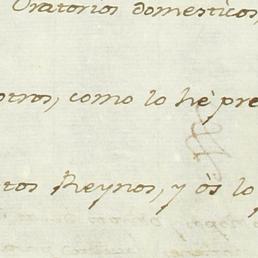 Oratorios domesticos,
otros, como lo hè pre
tos Reynos, y ós lo